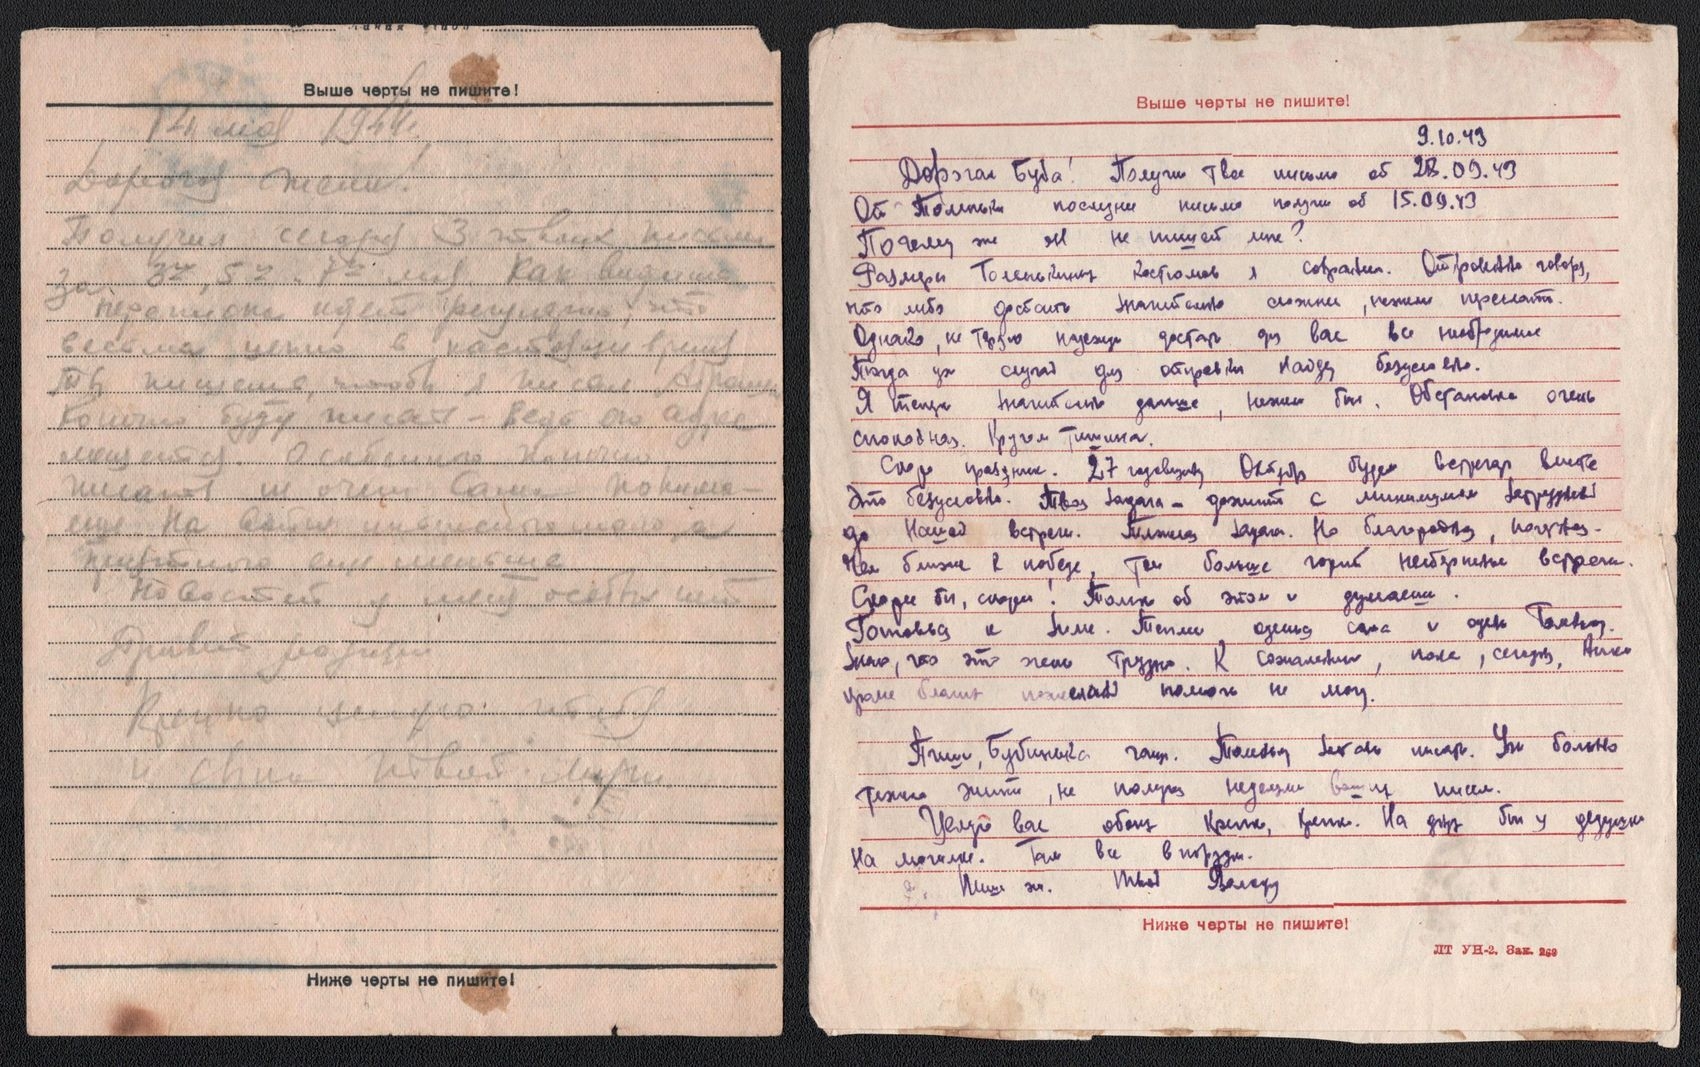 Выше черты не пишите!
14 мая 1944 г.
Дорогая Женя!
Получил сегодня 3 твоих письма
за 3го, 5го и 7го мая. Как видишь
переписка идет регулярно, это
весьма ценно в настоящее время
Ты пишешь, чтобы я писал
Конечно буду писать – ведь его адрес
имеется. Особенного конечно
писать не о чем. Сама понима-
ешь. На войне интересного мало, а
приятного еще меньше
Новостей у меня особых нет
Привет родным
Крепко целую тебя
и твой
Ниже черты не пишите!
Выше черты не пишите!
9.10.43
Дорогая Буба! Получил твое письмо от 28.09.43
От последнее письмо получил от 15.09.43
Почему же не пишет мне?
Размеры костюмов я сохранил. Откровенно говоря,
что либо достать значительно сложнее, нежели прислать.
Однако, не теряю надежды достать для вас все необходимое
Тогда уж случай для отправки найду безусловно.
Я теперь значительно дальше, нежели был. Обстановка очень
спокойная. Кругом тишина.
Скоро праздник. 27 годовщину Октября будем встречать вместе
Это безусловно. Твоя задача – дожить с минимумом
до нашей встречи. Тяжелая задача. Но благородная, нужная.
Чем ближе к победе, тем больше горит нетерпение встречи.
Скорее бы, скорей! Только об этом и думаешь.
Готовься к зиме. Теплее оденься сама и одень
Знаю, что это очень трудно. К сожалению, пока, сегодня,
кроме благих пожеланий помочь не могу.
Пиши, Бубинька чаще. писать. Уж больно
тяжело жить, не получая неделями ваших писем.
Целую вас обоих крепко, крепко. На днях был у дедушки
на могиле. Там все в порядке.
Пиши же. Твой Володя
Ниже черты не пишите!
ЛТ УН-2. Зак. 269